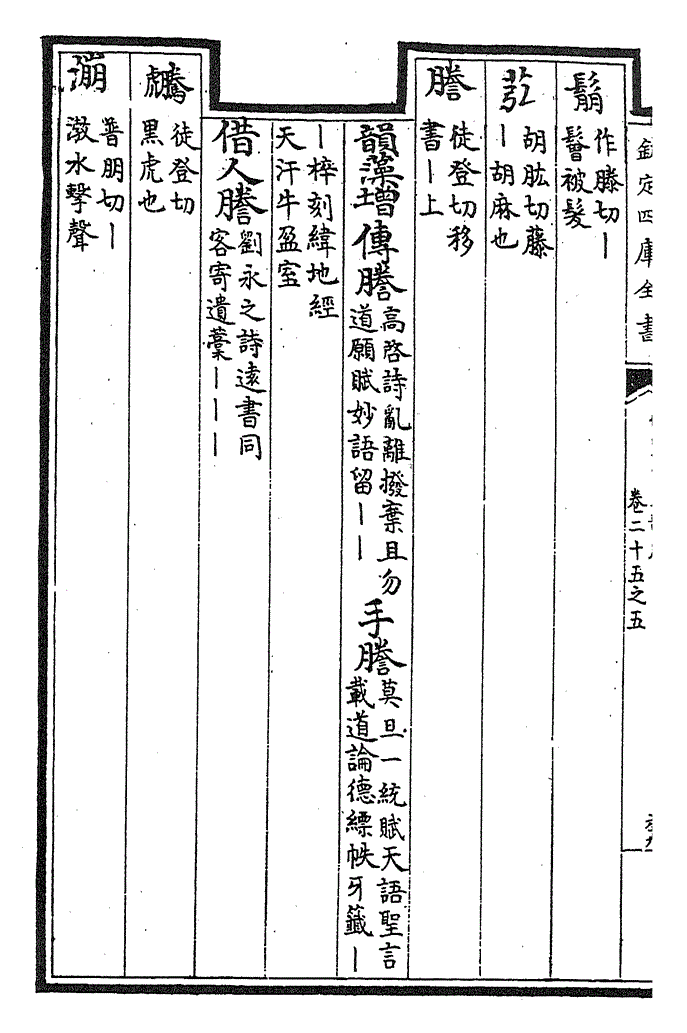 欽定四庫全書
卷二十五之五
鬅作滕切丨鬙被髮
苰胡肱切藤丨胡麻也
謄徒登切移書丨上
韻藻增傳謄高啓詩亂離撥棄且勿道願賦妙語留丨丨手謄莫旦一統賦天語聖言載道論德縹帙牙籤丨
丨梓刻緯地經天汗牛盈室
借人謄劉永之詩遠書同客寄遺藁丨丨丨
徒登切黑虎也
漰普朋切丨激水擊聲